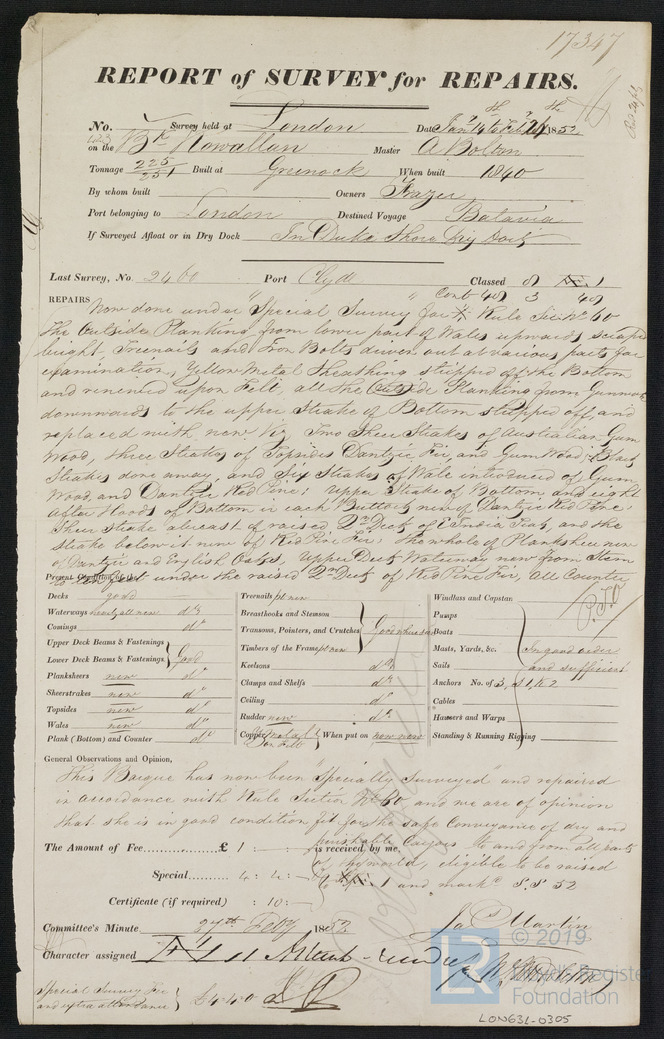 17347
REPORT of SURVEY for REPAIRS.
No. 123 Survey held at London Date Jany 14 to Feby 24th 1852
on the Bk Rowallan Master A Bolton
Tonnage 225/251 Built at Greenock When built 1840
By whom built Owners Frazer
Port belonging to London Destined Voyage Batavia
If Surveyed Afloat or in Dry Dock In Dock & Dry Dock
Last Survey, No. 2460 Port Clyde Classed 1
REPAIRS Cont 48 3 48
Now done under "Special Survey for Rule Secn No 60
The Outside Planking from lower part of Wales upwards scraped
bright, Treenails and Iron Bolts driven out at various parts for
examination, Yellow Metal Sheathing stripped off the Bottom
and renewed upon Felt, all the Outside Planking from Gunwale
downwards to the upper Strake of Bottom stripped off, and
replaced with new. Viz Two Sheer Strakes of Australian Gum
Wood, three Strakes of Topsides Dantzic Fir, and Gum Wood, Black
Strakes done away, and six Strakes of Wale introduced of Gum
Wood and Dantzic Red Pine; upper Strake of Bottom and eight
after Hoods of Bottom in each Buttock new of Dantzic Red Pine;
Sheer strake abreast of raised Qr Deck of E India Teak, and the
strake below it new of Red Pine Fir; the whole of Planksheer new
of Dantzic and English Oak, upper Deck Waterway new from Stem
to under the raised Qr Deck of Red Pine Fir, All Counter
P.T.O
Present Condition of the
Decks good
Waterways nearly all new do
Comings do
Upper Deck Beams & Fastenings
Lower Deck Beams & Fastenings Good
Planksheers new do
Sheerstrakes new do
Topsides new do
Wales new do
Plank (Bottom) and Counter do
Treenails pt new
Breasthooks and Stemson
Transons, Pointers, and Crutches Good where seen
Timbers of the Frame pt new
Keelsons do
Clamps and Shelfs do
Ceiling do
Rudder new do
Copper Y Metal on Felt When put on now new
Windlass and Capstan
Pumps
Boats
Masts, Yards, &c. In good order
Sails and sufficient
Anchors No. of 3, S 1, K 2
Cables
Hawsers and Warps
Standing & Running Rigging
General Observations and Opinion,
This Barque has now been "Specially Surveyed" and repaired
in accordance with Rule Section No 60, and we are of opinion
that she is in good condition fit for the safe Conveyance of dry and
perishable Cargoes to and from all parts
of the world, eligible to be raised
to 1 and markd S.S 52
The Amount of Fee £ 1 : : is received by me,
Special 4 : 4 : -
Certificate (if required) : 10 : -
Committee's Minute 27th Feby 1852
Character assigned
Jas Martin
Special Survey Fee
and extra attendance £4.4.0
LR © 2019
Lloyd's Register
Foundation
LON631-0305